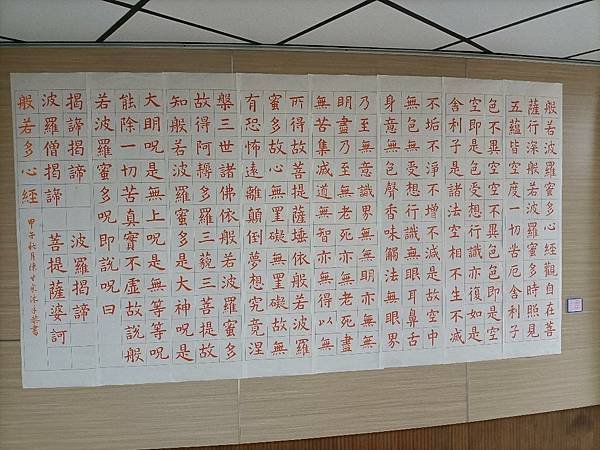 般若波羅蜜多心經觀自在菩
薩行深般若波羅蜜多時照見
五蘊皆空度一切苦厄舍利子
色不異空空不異色色即是空
空即是色受想行識亦復如是
舍利子是諸法空相不生不滅
不垢不淨不增不減是故空中
無色無受想行識無眼耳鼻舌
身意無色聲香味觸法無眼界
乃至無意識界無無明亦無無
明盡乃至無老死亦無老死盡
無苦集滅道無智亦無得以無
所得故菩提薩埵依般若波羅
蜜多故心無罣礙無罣礙故無
有恐怖遠離顛倒夢想究竟涅
槃三世諸佛依般若波羅蜜多
故得阿耨多羅三藐三菩提故
知般若波羅蜜多是大神呪是
大明呪是無上呪是無等等呪
能除一切苦真實不虛故說般
若波羅蜜多呪即說呪曰
揭諦揭諦 波羅揭諦
波羅僧揭諦 菩提薩婆訶
般若多心經
甲子秋月 沐手恭書